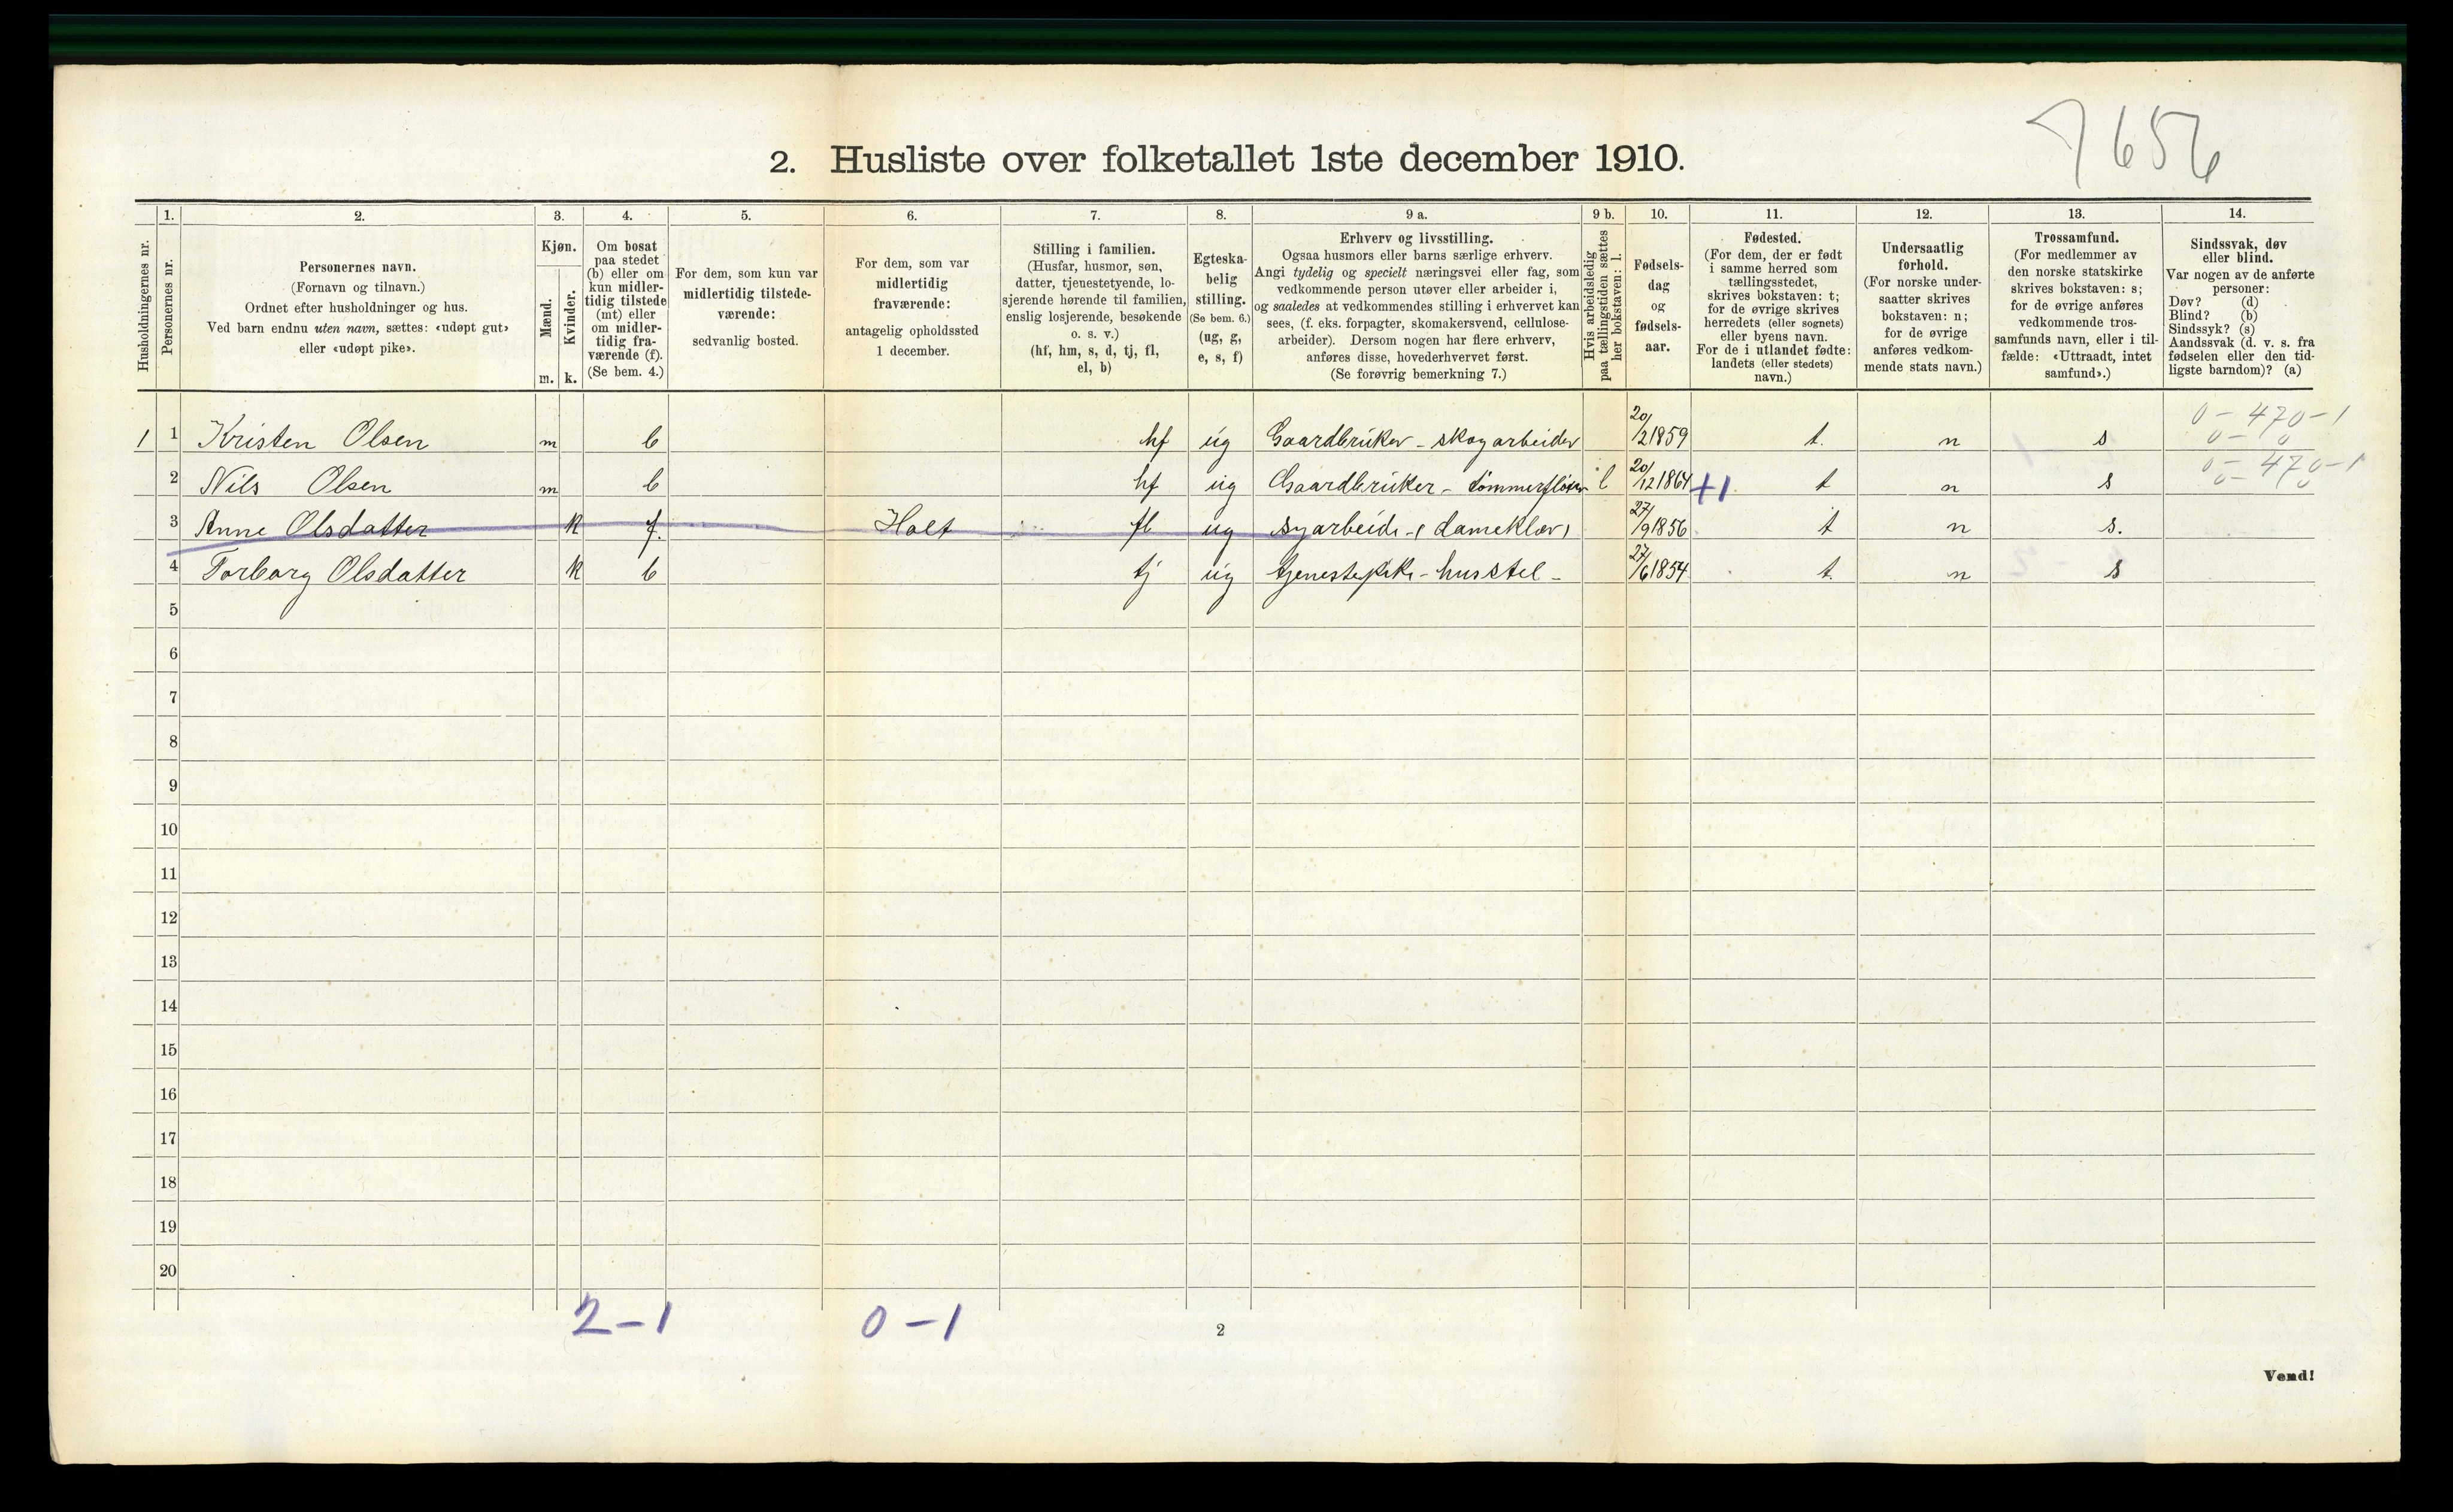 7656
2. Husliste over folketallet 1ste december 1910.
1. 2. 3. 4. 5. 6. 7. 8. 9 a. 9 b. 10. 11. 12. 13. 14.
Husholdningernes nr.
Personernes nr.
Personernes navn.
(Fornavn og tilnavn.)
Ordnet efter husholdninger og hus.
Ved barn endnu uten navn, sættes: «udøpt gut»
eller «udøpt pike».
Kjøn.
Mænd.
Kvinder.
m. k.
Om bosat
paa stedet
(b) eller om
kun midler-
tidig tilstede
(mt) eller
om midler-
tidig fra-
værende (f).
(Se bem. 4.)
For dem, som kun var
midlertidig tilstede-
værende:
sedvanlig bosted.
For dem, som var
midlertidig
fraværende:
antagelig opholdssted
1 december.
Stilling i familien.
(Husfar, husmor, søn,
datter, tjenestetyende, lo-
sjerende hørende til familien,
enslig losjerende, besøkende
o. s. v.)
(hf, hm, s, d, tj, fl,
el, b)
Egteska-
belig
stilling.
(Se bem. 6.)
(ug, g,
e, s, f)
Erhverv og livsstilling.
Ogsaa husmors eller barns særlige erhverv.
Angi tydelig og specielt næringsvei eller fag, som
vedkommende person utøver eller arbeider i,
og saaledes at vedkommendes stilling i erhvervet kan
sees, (f. eks. forpagter, skomakersvend, cellulose-
arbeider). Dersom nogen har flere erhverv,
anføres disse, hovederhvervet først.
(Se forøvrig bemerkning 7.)
Hvis arbeidsledig
paa tællingstiden sættes
her bokstaven: l.
Fødsels-
dag
og
fødsels-
aar.
Fødested.
(For dem, der er født
i samme herred som
tællingsstedet,
skrives bokstaven: t;
for de øvrige skrives
herredets (eller sognets)
eller byens navn.
For de i utlandet fødte:
landets (eller stedets)
navn.)
Undersaatlig
forhold.
(For norske under-
saatter skrives
bokstaven: n;
for de øvrige
anføres vedkom-
mende stats navn.)
Trossamfund.
(For medlemmer av
den norske statskirke
skrives bokstaven: s;
for de øvrige anføres
vedkommende tros-
samfunds navn, eller i til-
fælde: «Uttraadt, intet
samfund».)
Sindssvak, døv
eller blind.
Var nogen av de anførte
personer:
Døv? (d)
Blind? (b)
Sindssyk? (s)
Aandssvak (d. v. s. fra
fødselen eller den tid-
ligste barndom)? (a)
1 1 Kristen Olsen m b hf ug Gaardbruker - skogarbeider 20/2 1859 t. n s 0 - 470 - 1
0 - 0
2 Nils Olsen m b hf ug Gaardbruker - tømmerfløter l 20/12 1864 +1 t n s 0 - 470 - 1
0 - 0
3 Anne Olsdatter k f. Holt fl ug syarbeide - (dameklær) 27/9 1856 t n s.
4 Torborg Olsdatter k b tj ug tjenestepike - husstel - 27/6 1854 t. n s
5
6
7
8
9
10
11
12
13
14
15
16
17
18
19
20
2 - 1 0 - 1
2
Vend!